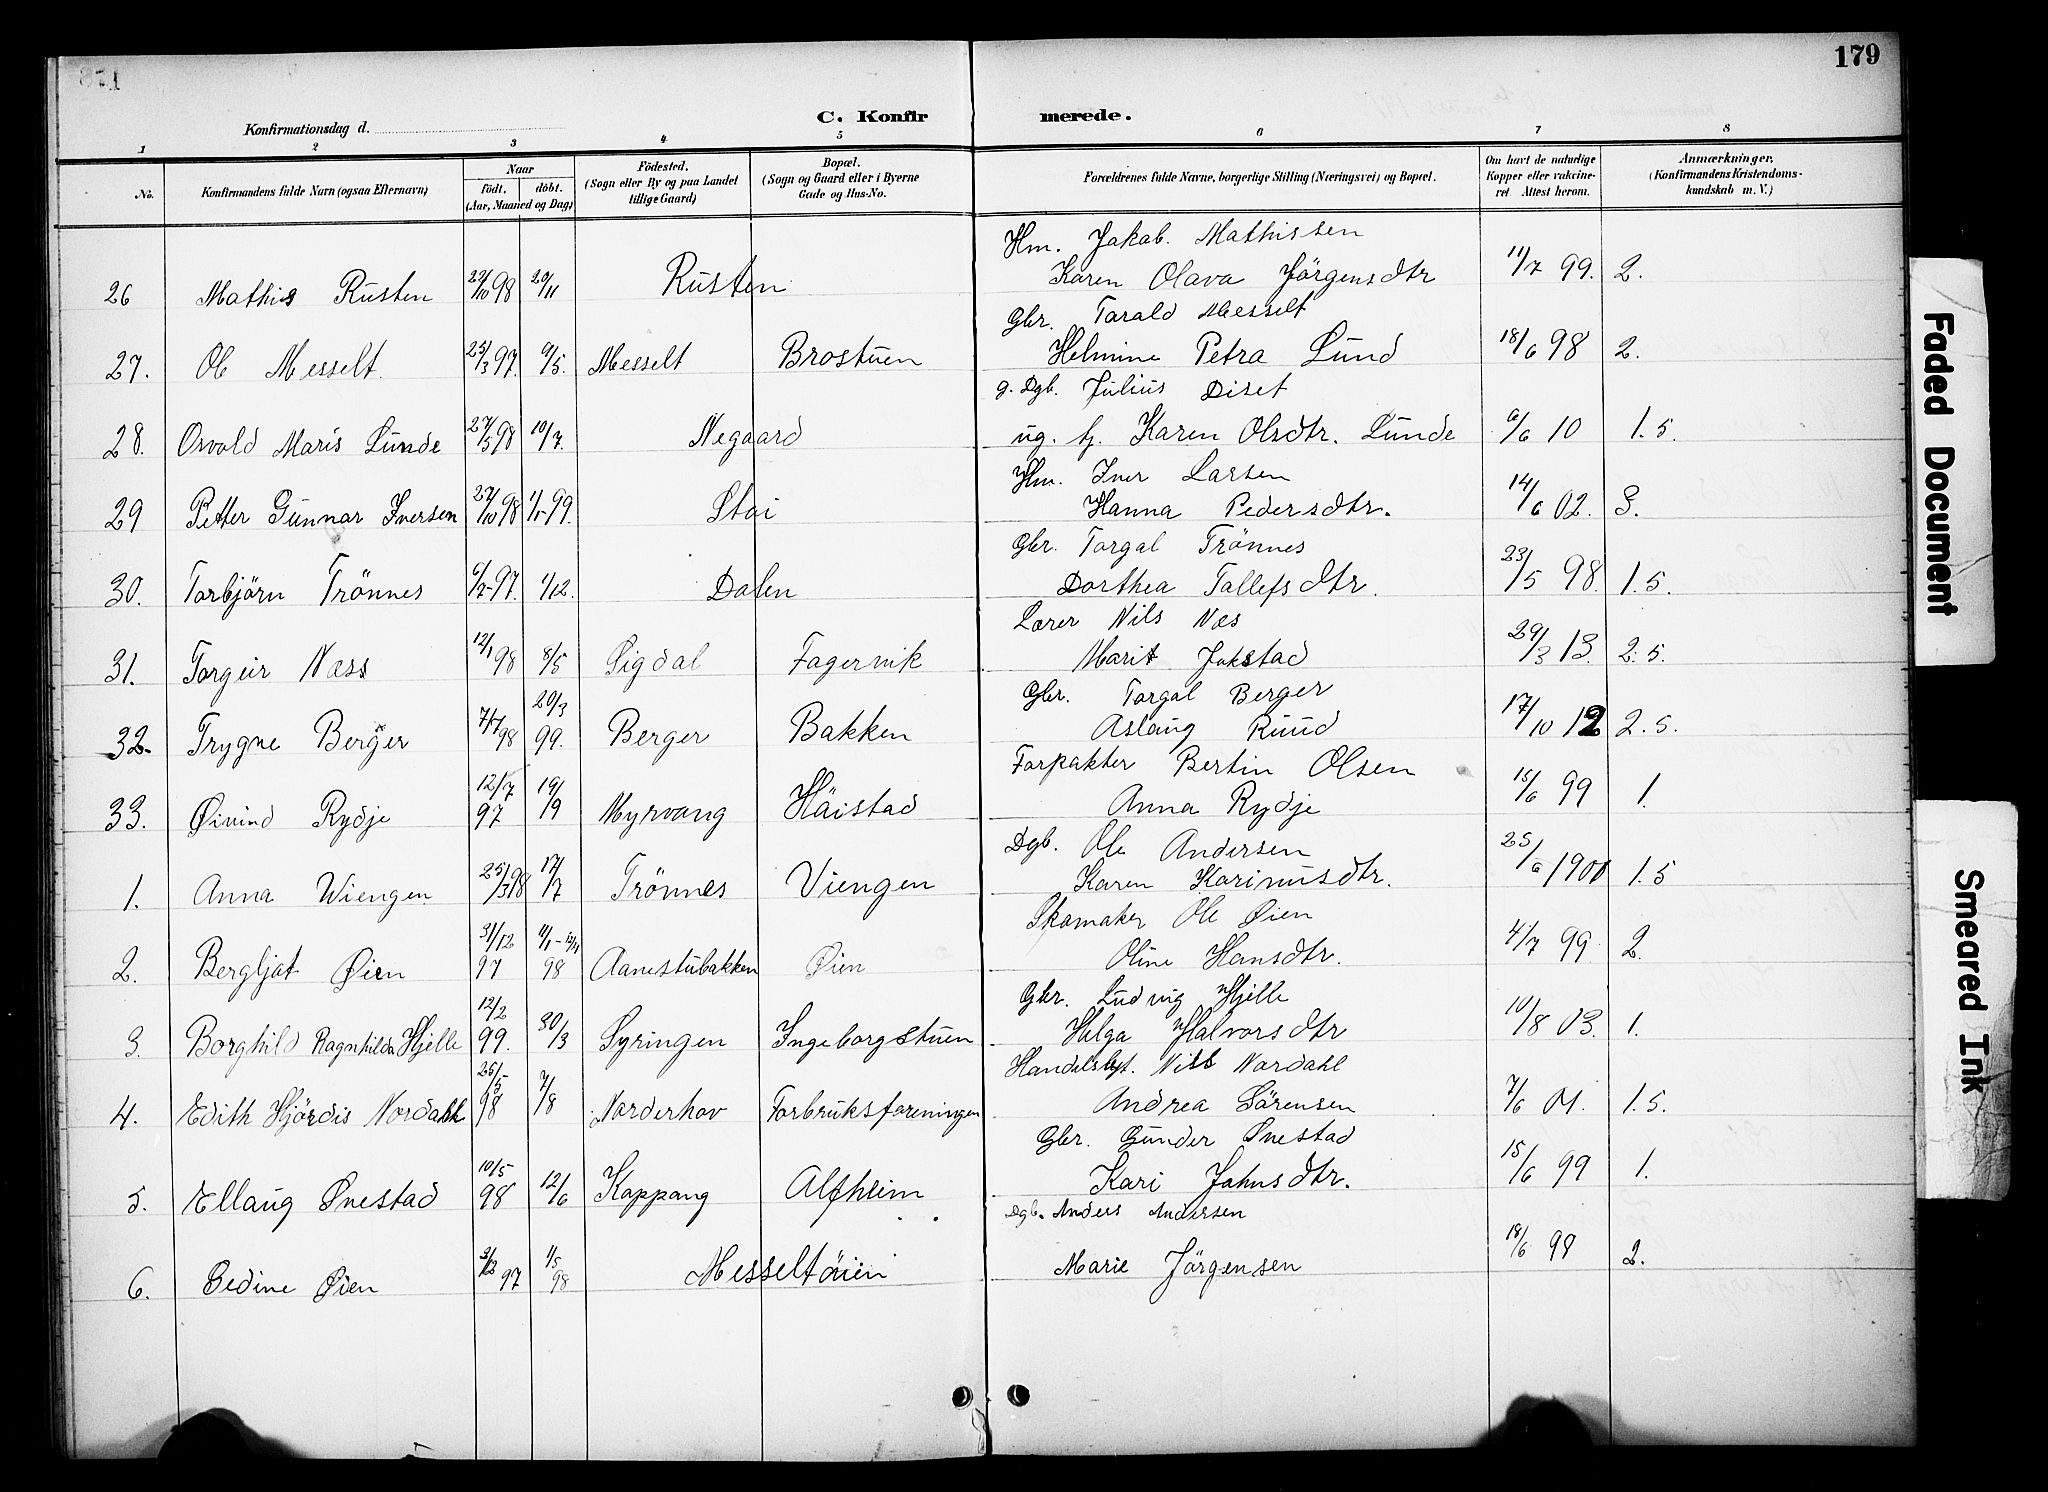 179
C. Konfirmerede.
Konfirmationsdag d.
1 2 3 4 5 6 7 8
No. Konfirmandens fulde Navn (ogsaa Efternavn) Naar født, døbt. (Aar, Maaned og Dag) Födested. (Sogn eller By og paa Landet tillige Gaard) Bopæl. (Sogn og Gaard eller i Byerne Gade og Hus-No. Forældrenes fulde Navne, borgerlige Stilling (Næringsvei) og Bopæl. Om havt de naturlige Kopper eller vakcineret Attest herom. Anmærkninger, (Konfirmandens Kristendomskundskab m. V.)
Hm. Jakob. Mathissen
26 Mathis Rusten 22/10 98 20/11 Rusten Karen Olava Jörgensdtr 11/7 99. 2.
Gbr. Torald Messelt
27. Ole Messelt. 25/3 97. 9/5. Messelt Brostuen Helmine Petra Lund 18/6 98 2.
g. Dgb. Julius Diset
28. Osvald Maris Lunde 27/5 98 10/7. Negaard ug. tj. Karen Olsdtr. Lunde 6/6 10 1.5.
Hm. Iver Larsen
29 Petter Gunnar Iversen 27/10 98 1/1 99. Stai Hanna Pedersdtr. 14/6 02. 3.
Gbr. Torgal Trönnes
30. Torbjörn Trönnes 6/7 97. 1/12. Dalen Dorthea Tollefsdtr. 23/5 98. 1.5.
Lærer Nils Næs
31. Torgeir Næss 12/1 98 8/5 Sigdal Fagervik Marit Jokstad 29/3 13. 2.5.
Gbr. Torgal Berger
32. Trygve Berger 7/7 98 20/3 99. Berger Bakken Aslaug Ruud 17/10 12 2.5.
Forpakter Bertin Olsen
33. Øivind Rydje 12/7 97 19/9 Myrvang Häistad Anna Rydje 15/6 99 1.
Dgb. Ole Andersen
1. Anna Wiengen 25/3 98 17/7 Trönnes Viengen Karen Karinusdtr. 25/6 1901 1.5
Skomaker Ole Øien
2. Bergljot Øien 31/12 97 98 Aanestubakken Øien Oline Hansdtr. 4/7 99 2.
Gbr. Ludvig Hjelle
3. Borghild Ragnhilda Hjelle 12/2 99. 30/3 Syringen Ingeborgstuen Helga Halvorsdtr 10/8 03. 1.
Handelsbst. Nils Nordahl
4. Edith Hjördis Nordahl 25/5 98 7/8 Norderhov Forbruksforeningen Andrea Sörensen 7/6 01. 1.5.
Gbr. Gunder Ønestad
5. Ellaug Ønestad 10/5 98 12/6 Koppang Alfheim Kari Johnsdtr. 15/6 99 1.
Dgb. Anders Andersen
6. Gedine Øien 97 1/5 98 Messeltöien Marie Jörgensen 18/6 98 2.
Faded Document
Smeared Ink